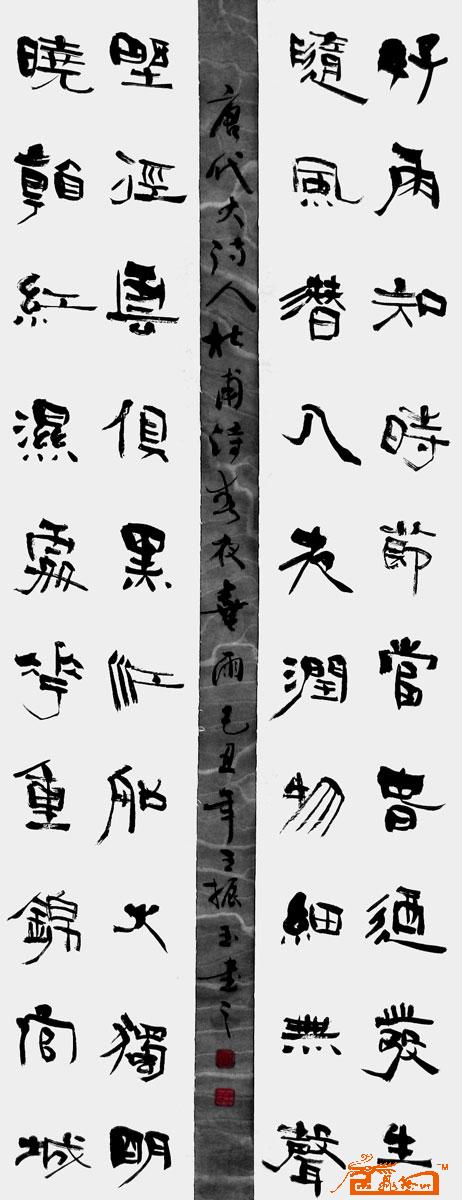 好雨知時節當春迺發生
隨風潛入夜潤物細無聲
唐代大诗人杜甫诗春夜喜雨己丑年王振玉書之
野徑雲俱黑江船火獨明
曉看紅濕處花重錦官城